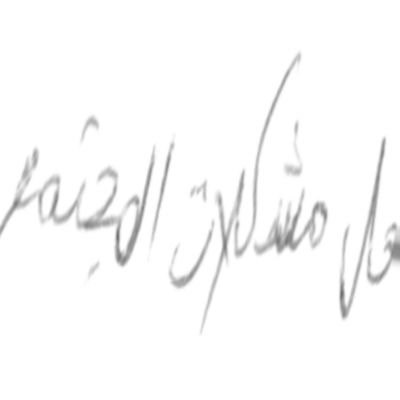 حل مشكلات المجتمع